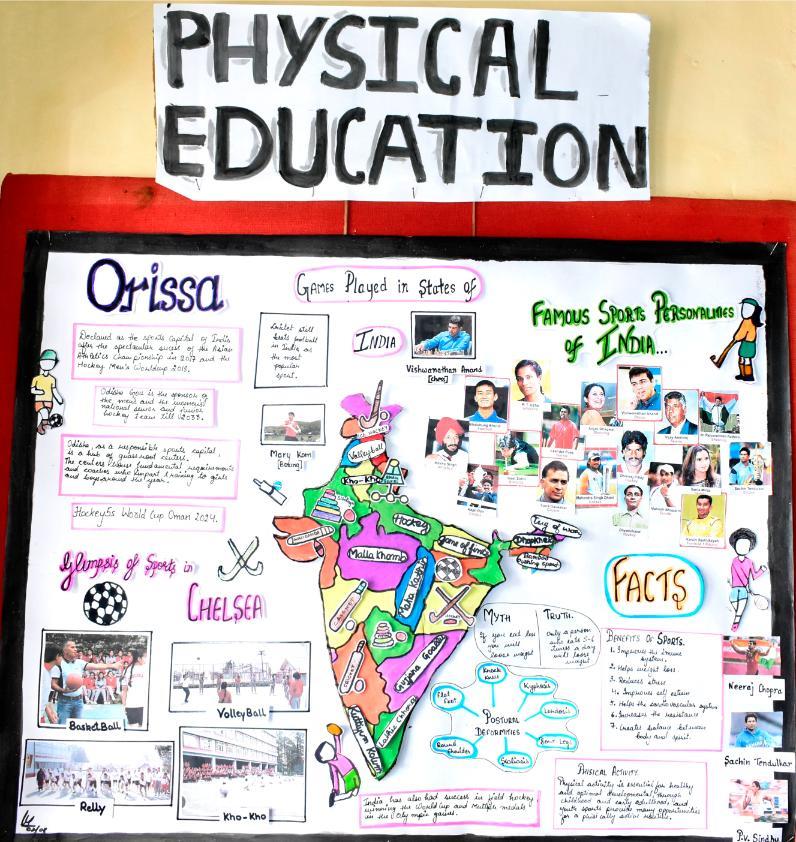 PHYSICAL
EDUCATION
Orissa
Declared as the sports Capital of India
after the spectacular sucess of the Asian
Athletics Championship in 2017 and the
Hockey Men's Worldcup 2018.
Odisha Govt is the sponsor of
the mens and the womens
national senior and junior
hockey team till 2033.
Odisha, as a responsible sports capital
is a hub of grassroot centers.
The centers fundamental requirements
and coaches who impart training to girls
and boys around the year.
Hockey5s World Cup Oman 2024.
GAMES PLAYED IN STATES OF
INDIA
Cricket still
beats football
in India as
the most
popular
sport.
Vishwanathan Anand
[chess]
Mary Kom
[Boxing]
FAMOUS SPORTS PERSONALITIES
OF INDIA...
ICE HOCKEY
Volleyball
Kho-Kho
Hockey
Mallakhamb
Tug of war
Dhopkhel
Maha Kabaddi
CRICKET
Kathgym Kolum
Glimpsis of Sports in
CHELSEA
BasketBall
VolleyBall
Relly
Kho-Kho
MYTH
TRUTH
If you eat less
you will
loose weight
only a person
who eats 5-6
times a day
will loose
weight
POSTURAL
DEFORMITIES
Knock
Knees
Kyphosis
Lordosis
Bow Legs
Scoliosis
Round
Shoulder
Flat
Foot
FACTS
BENEFITS OF SPORTS.
1. Improves the immune
system.
2. Helps weight loss.
3. Reduces stress
4. Improves self esteem
5. Helps the cardiovascular system
6. Increases the resistance
7. Creates balance between
body and spirit.
Neeraj Chopra
Sachin Tendulkar
P.V. Sindhu
PHYSICAL ACTIVITY.
Physical activity is essential for healthy
and optimal development through
childhood and early adulthood, and
youth sports provide many opportunities
for a physically active lifestyle.
India has also had success in field hockey
winning the World Cup and Multiple medals
in the Olympic games.